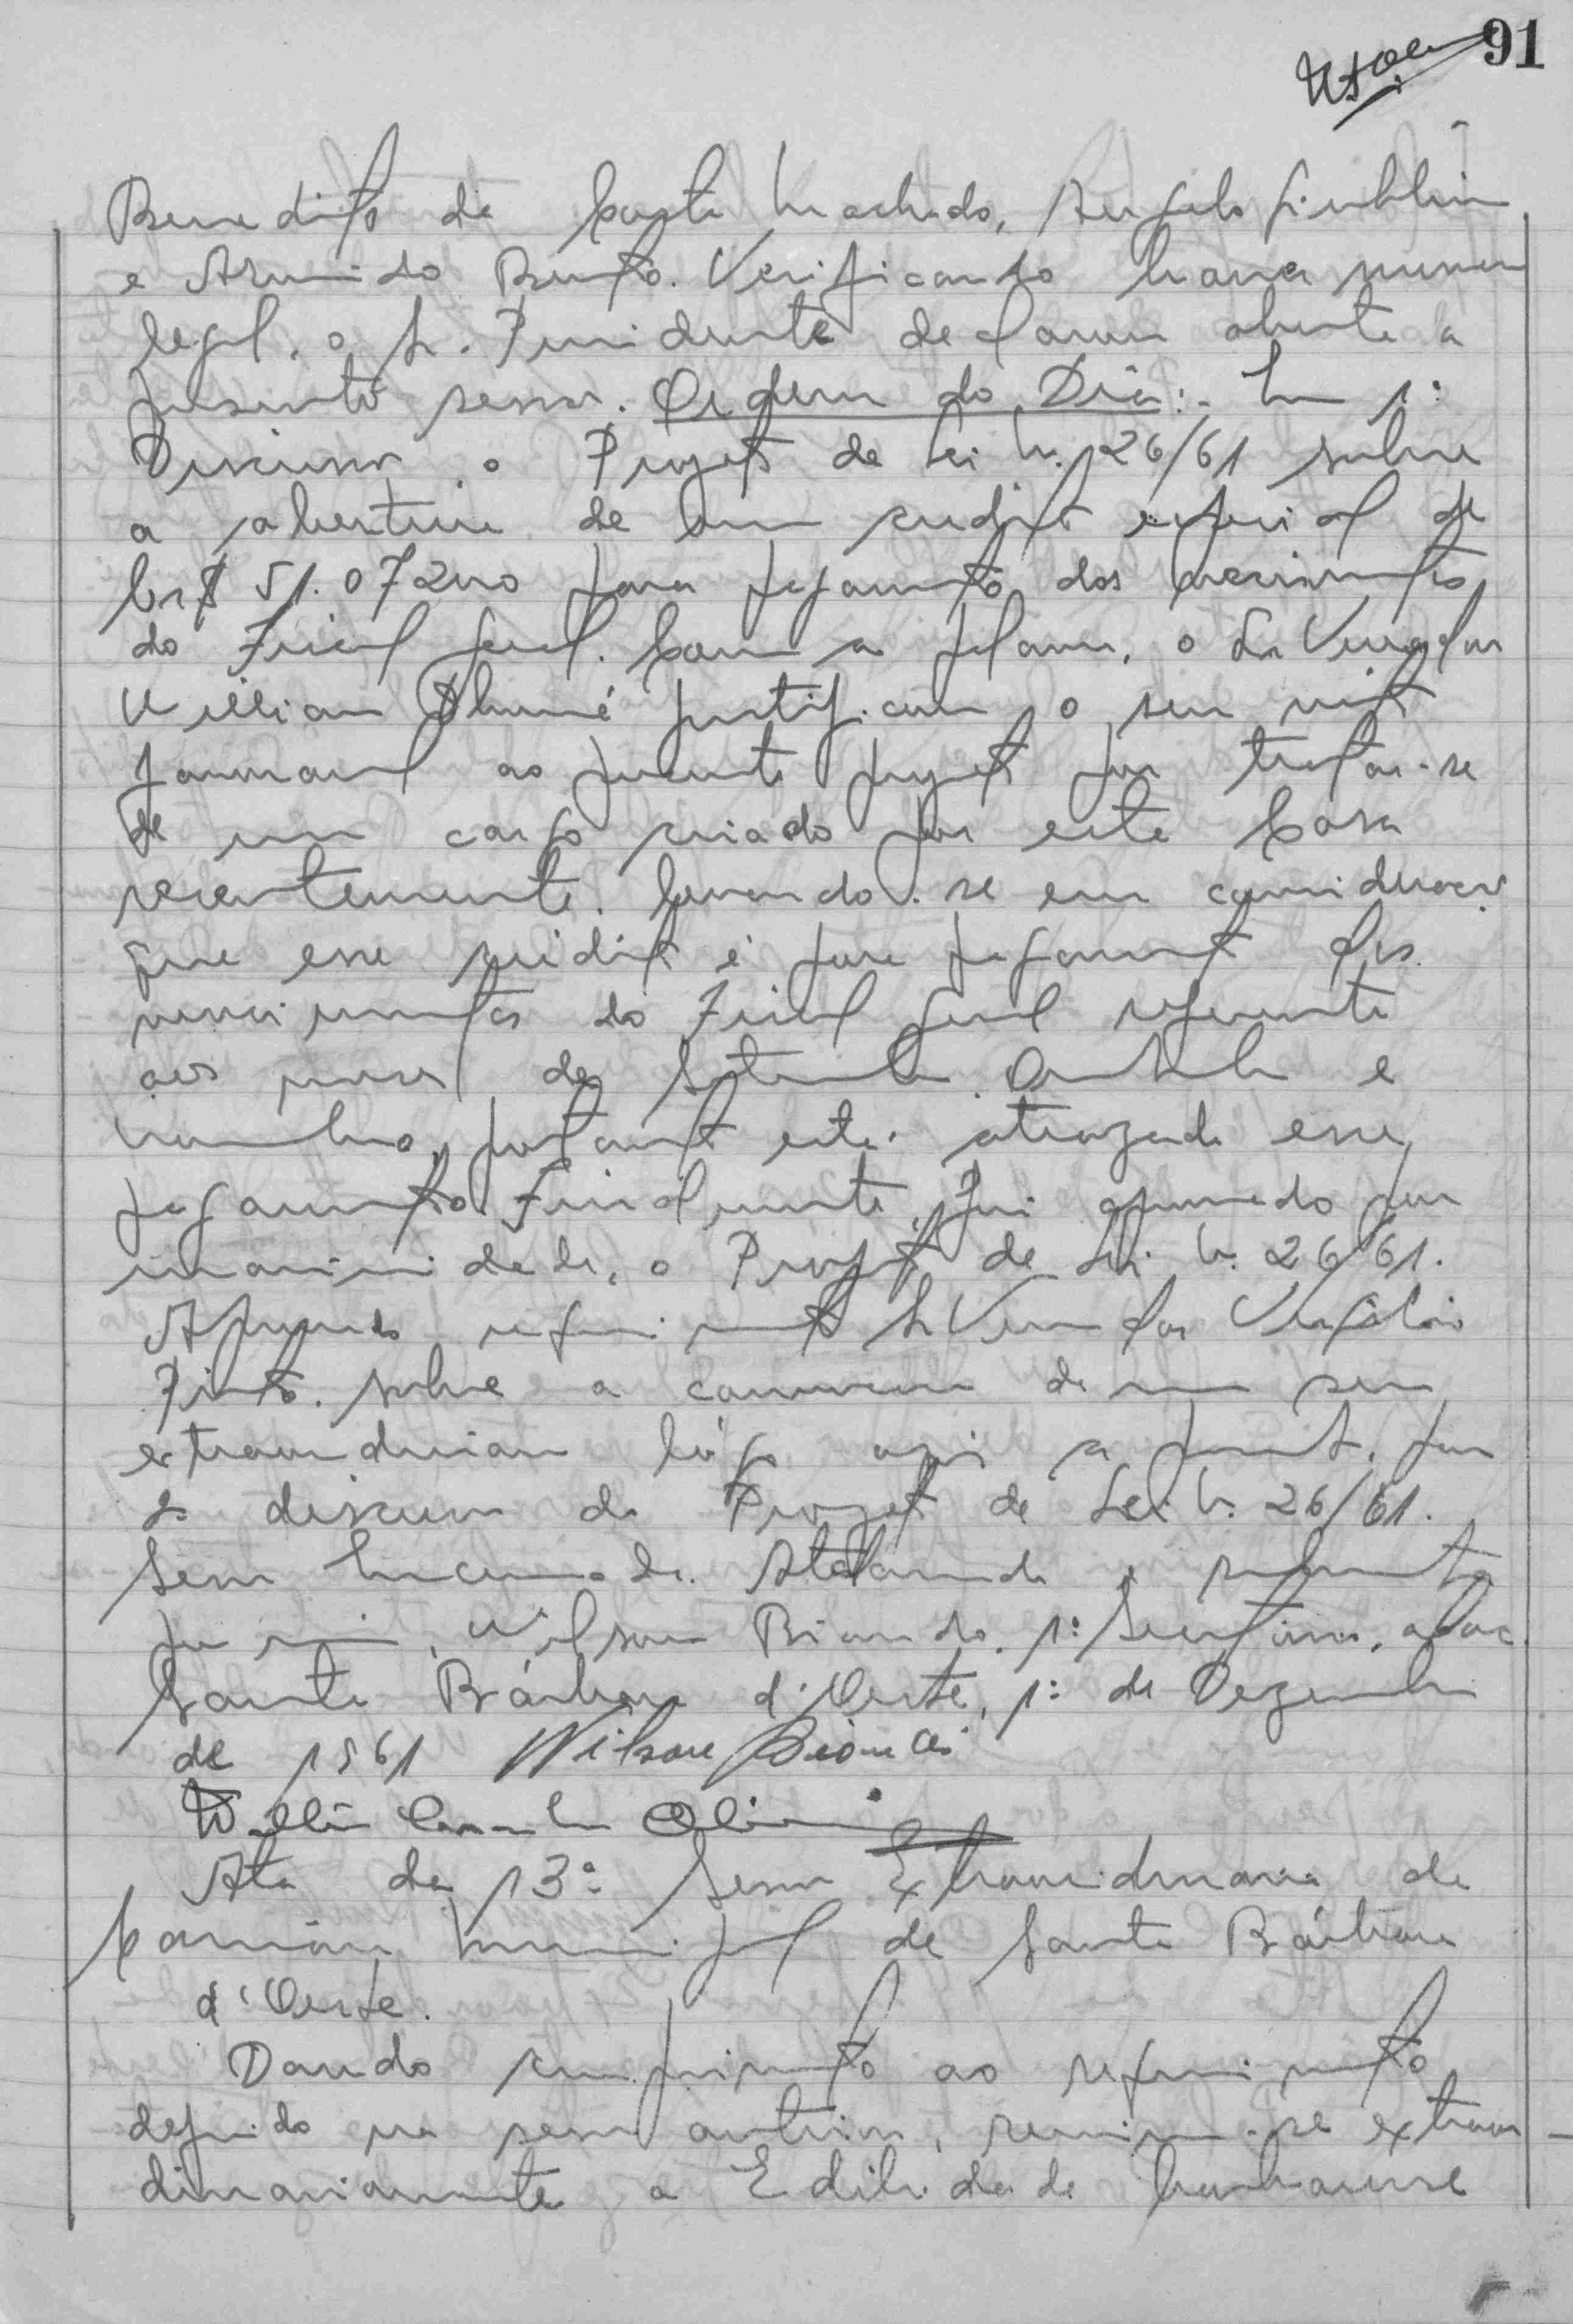 91
Benedito da Costa Machado, Angelo Giubbina
e Armindo Bento. Verificando haver numero
legal, o Sr. Presidente declarou aberta a
presente sessão. Ordem do Dia:- Em 1ª
Discussão o Projeto de Lei N. 26/61 sobre
a abertura de um credito especial de
Cr$ 51.072,00 para pagamento dos vencimentos
do Fiscal Geral. Com a palavra, o Sr. Vereador
William justificou o seu voto
favoravel ao presente projeto por tratar-se
de um cargo criado por esta Casa
recentemente. Levando-se em consideração
que esse credito é para pagamento dos
vencimentos do Fiscal Geral referente
aos meses de Setembro, Outubro e
Novembro, portanto está atrazado esse
pagamento. Finalmente, foi aprovado por
unanimidade, o Projeto de Lei N. 26/61.
Aprovado requerimento Sr Vereador Vergilio
Pinto, sobre a convocação de uma sessão
extraordinaria lógo após a presente, para
a discussão do Projeto de Lei N. 26/61.
Sem mais nada. Ata lavrada e subscrita
por mim, Wilson Bianco, 1º Secretario,
Santa Bárbara d'Oeste, 1º de Dezembro
de 1961 Wilson
Ata da 13ª Sessão Extraordinaria da
Camara Municipal de Santa Bárbara
d'Oeste.
Dando cumprimento ao requerimento
deferido na sessão anterior, reuniu-se extraor-
dinariamente a Edilidade barbarense